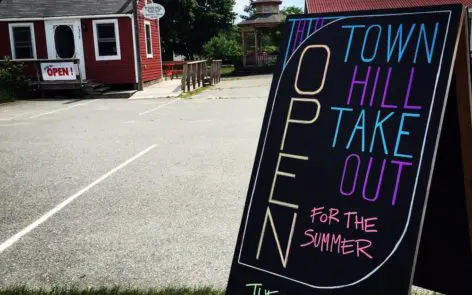 THE
TOWN
HILL
TAKE
OUT
OPEN
FOR THE
SUMMER
OPEN!